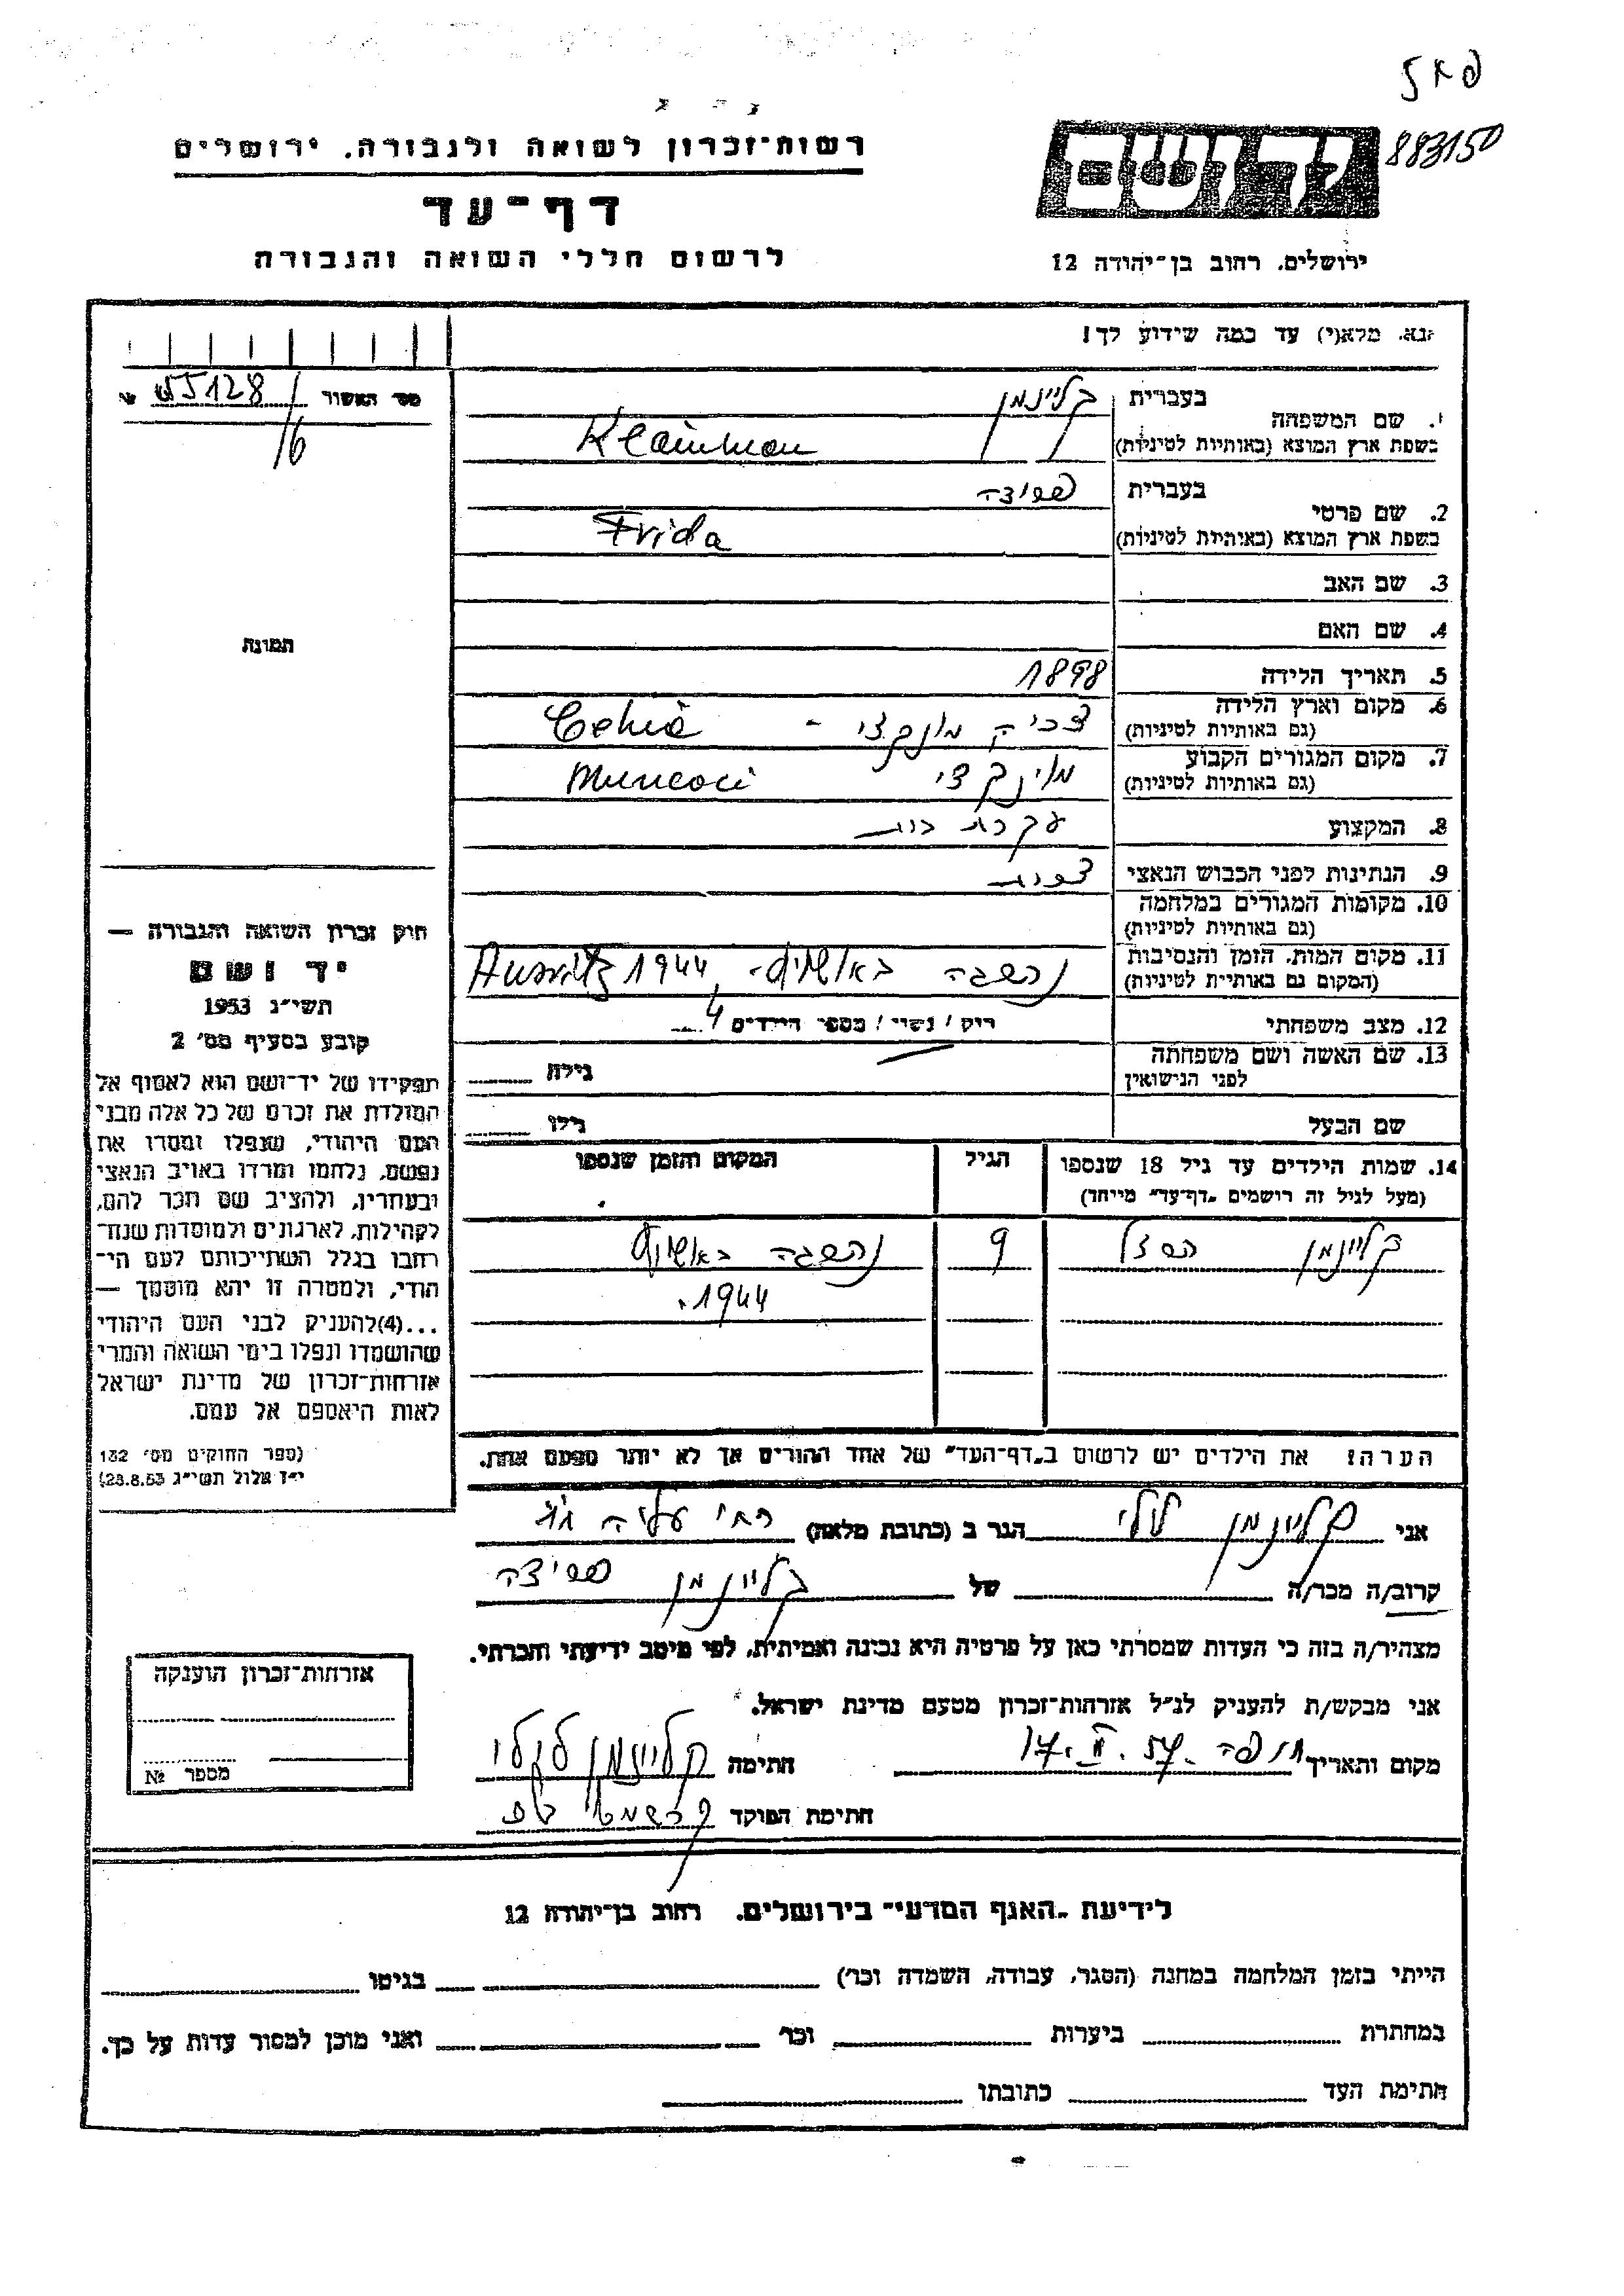 883150
רשות־זכרון לשואה ולגבורה. ירושלים
דף־עד
לרשום חללי השואה והגבורה
ירושלים. רחוב בן־יהודה 12
נא. מלא(י) עד כמה שידוע לך!
מס׳ האשור 55128
/6
1. שם המשפחה בעברית קליינמן
בשפת ארץ המוצא (באותיות לטיניות) Klainman
2. שם פרטי בעברית
בשפת ארץ המוצא (באותיות לטיניות) Frida
3. שם האב
4. שם האם
5. תאריך הלידה 1898
6. מקום וארץ הלידה
(גם באותיות לטיניות) צכיה מונקצי - Cehia
7. מקום המגורים הקבוע
(גם באותיות לטיניות) מונקצי Muncaci
8. המקצוע עקרת בית
9. הנתינות לפני הכבוש הנאצי צכית
10. מקומות המגורים במלחמה
(גם באותיות לטיניות)
11. מקום המות. הזמן והנסיבות
(המקום גם באותיות לטיניות) נהשגה באושויץ. Auswitz 1944
12. מצב משפחתי רוק / נשוי / מספר הילדים 4
13. שם האשה ושם משפחתה
לפני הנישואין גילה
שם הבעל גילו
14. שמות הילדים עד גיל 18 שנספו הגיל המקום והזמן שנספו
(מעל לגיל זה רושמים "דף־עד" מייחד)
קליינמן 9 נהשגה באושויץ
1944.
הערה: את הילדים יש לרשום ב"דף־העד" של אחד ההורים אך לא יותר מפעם אחת.
תמונה
חוק זכרון השואה והגבורה —
יד ושם
תשי״ג 1953
קובע בסעיף מס׳ 2
תפקידו של יד־ושם הוא לאסוף אל
המולדת את זכרם של כל אלה מבני
העם היהודי, שנפלו ומסרו את
נפשם, נלחמו ומרדו באויב הנאצי
ובעוזריו, ולהציב שם וזכר להם,
לקהילות, לארגונים ולמוסדות שנח־
רבו בגלל השתייכותם לעם הי־
הודי, ולמטרה זו יהא מוסמך —
...(4)להעניק לבני העם היהודי
שהושמדו ונפלו בימי השואה והמרי
אזרחות־זכרון של מדינת ישראל
לאות היאספם אל עמם.
(ספר החוקים מס׳ 132
י״ז אלול תשי״ג 28.8.53)
אני קליינמן לילי הגר ב (כתובת מלאה)
קרוב/ה מכר/ה של קליינמן
מצהיר/ה בזה כי העדות שמסרתי כאן על פרטיה היא נכונה ואמיתית, לפי מיטב ידיעתי והכרתי.
אני מבקש/ת להעניק לנ״ל אזרחות־זכרון מטעם מדינת ישראל.
מקום ותאריך חיפה 17.II.57. חתימה קליינמן לילי
חתימת הפוקד
אזרחות־זכרון הוענקה
מספר №
לידיעת "האגף המדעי" בירושלים. רחוב בן־יהודה 12
הייתי בזמן המלחמה במחנה (הסגר, עבודה, השמדה וכו׳) בגיטו
במחתרת ביערות וכו׳ ואני מוכן למסור עדות על כך.
חתימת העד כתובתו